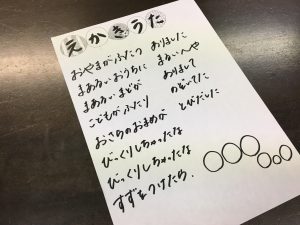 えかきうた
おやまがふたつ おりました
まあるいおうちに まるいへや
まあるいまどが おりまして
こどもがふたり のぞいてた
おさらのおまめが とびだした
びっくりしちゃったな
びっくりしちゃったな
すずをつけたら、